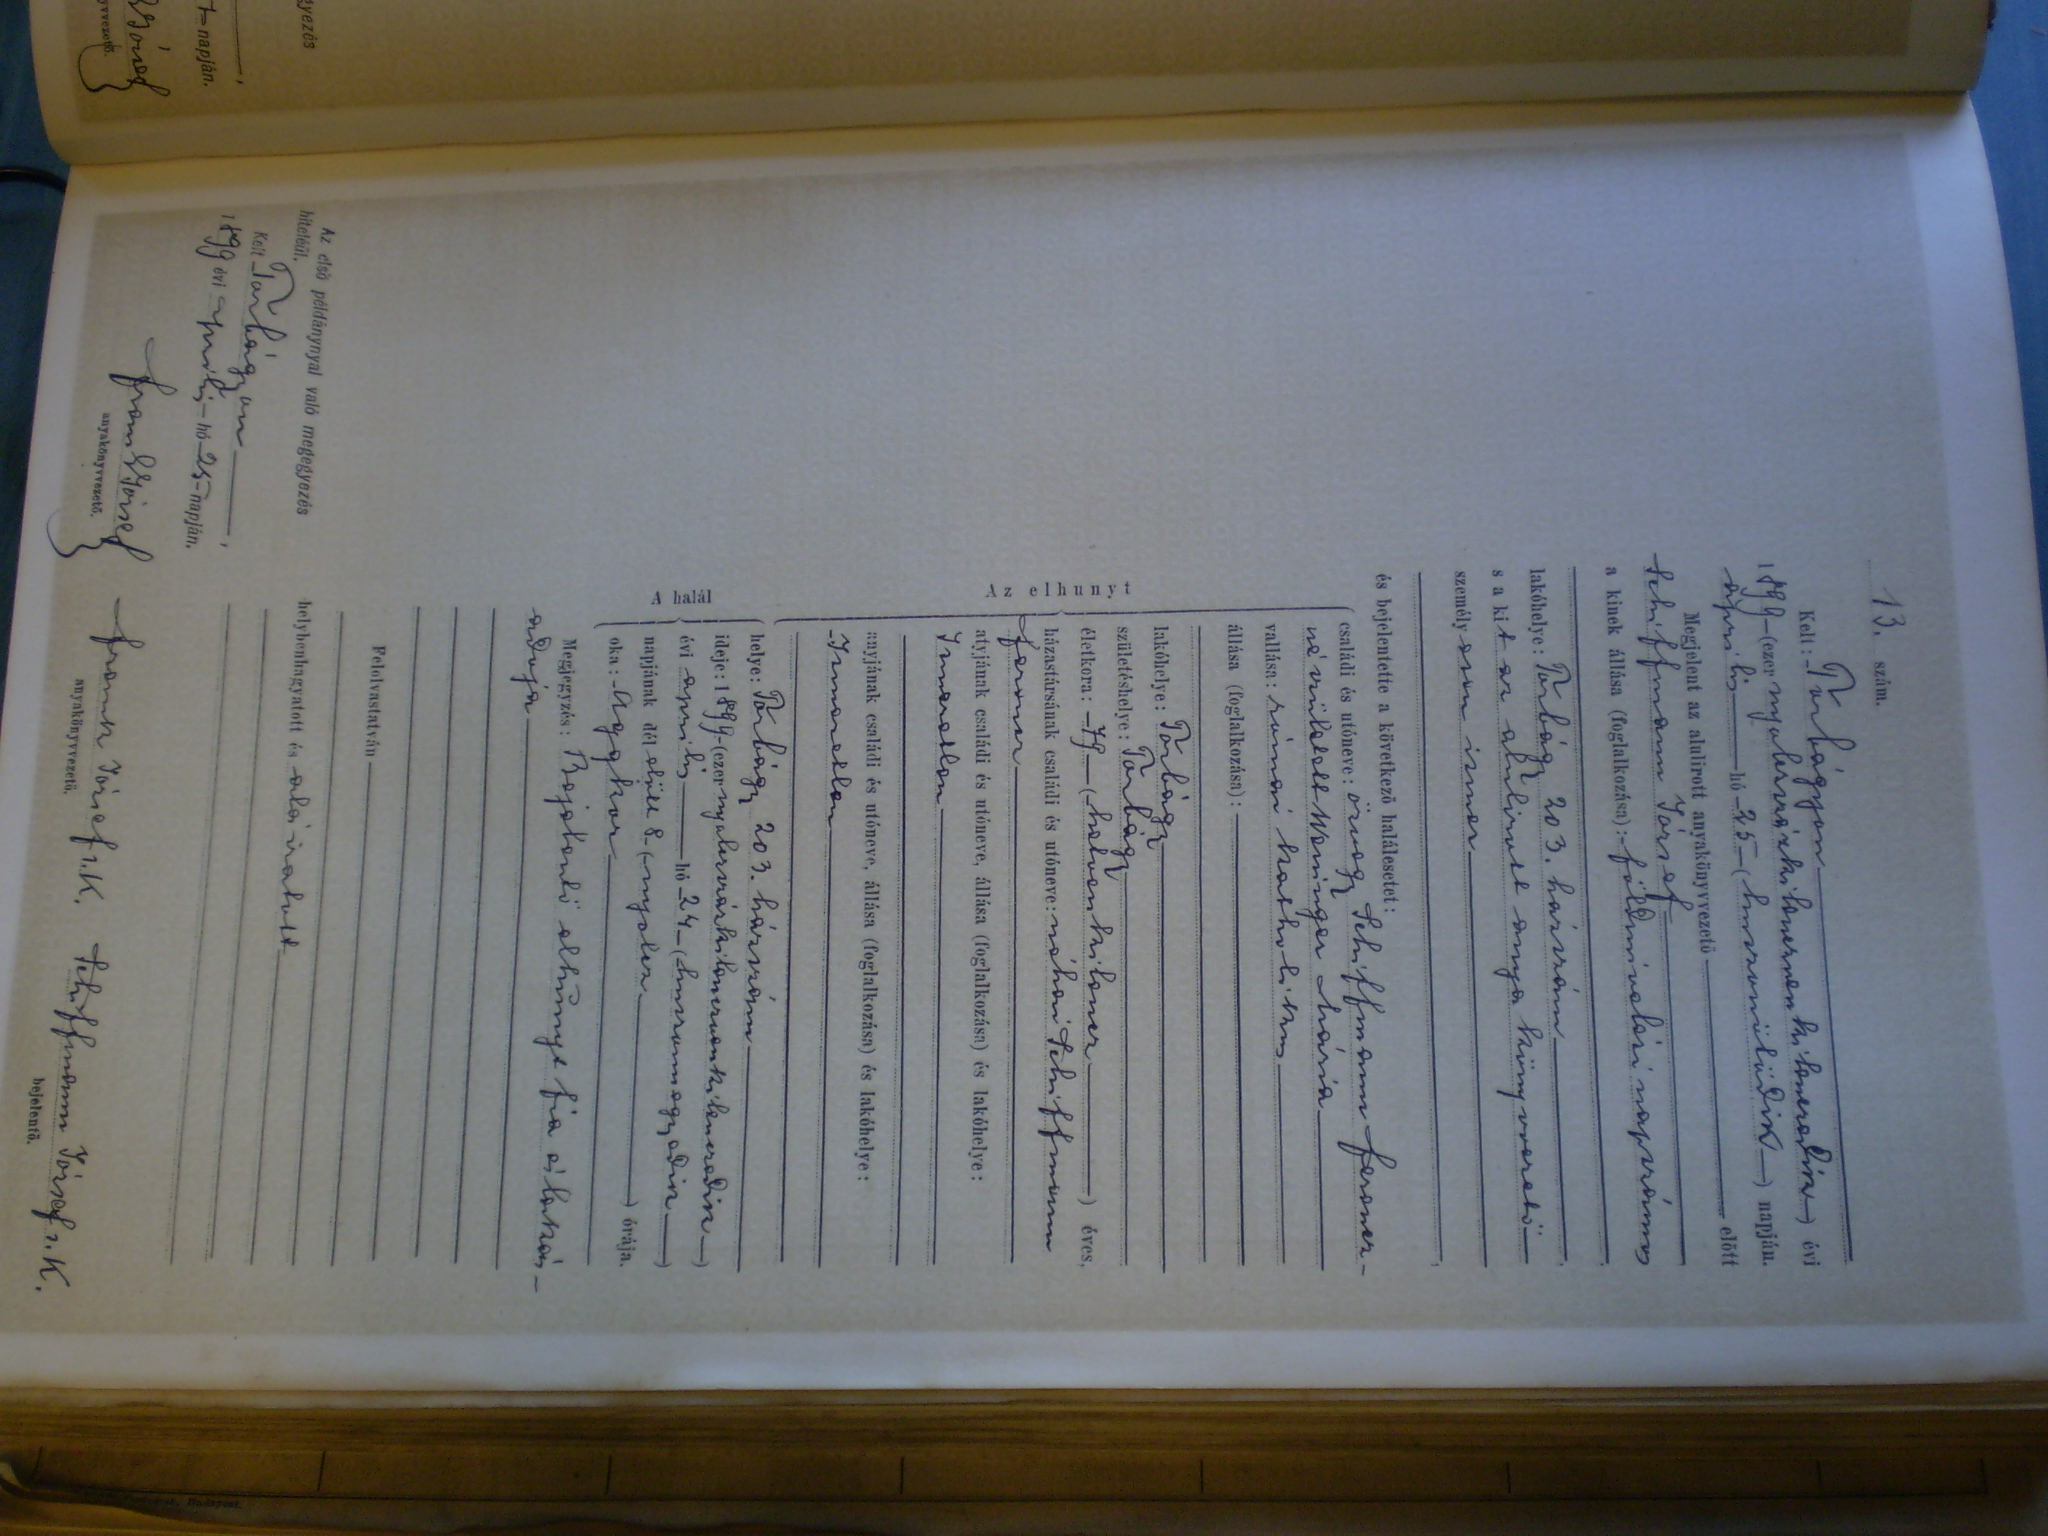 13. szám.
Kelt: Torbágyon
1899 (ezernyolczszázkilenczvenkilenczedik) évi
április hó 25 (huszonötödik) napján.
Megjelent az alulirott anyakönyvvezető előtt
Schiffmann József
a kinek állása (foglalkozása): földmivelési napszámos
lakóhelye: Torbágy 203. házszám
s a kit az alulirott anyakönyvvezető
személyesen ismer
és bejelentette a következő halálesetet:
Az elhunyt
családi és utóneve: özvegy Schiffmann Ferencz-
né született Weninger Mária
vallása: római katholikus
állása (foglalkozása):
lakóhelye: Torbágy
születéshelye: Torbágy
életkora: 79 (hetvenkilencz) éves,
házastársának családi és utóneve: néhai Schiffmann
Ferencz
atyjának családi és utóneve, állása (foglalkozása) és lakóhelye:
Ismeretlen
anyjának családi és utóneve, állása (foglalkozása) és lakóhelye:
Ismeretlen
A halál
helye: Torbágy 203. házszám
ideje: 1899 (ezernyolczszázkilenczvenkilenczedik)
évi április hó 24 (huszonnegyedik)
napjának dél előtt 8 (nyolcz) órája.
oka: Aggkor
Megjegyzés: Bejelentő elhunyt fia s lakás-
adója
Felolvastatván
helybenhagyatott és aláiratott
Frank József s.K.
anyakönyvvezető.
Schiffmann József s.K.
bejelentő.
Az első példánynyal való megegyezés
hiteléül.
Kelt Torbágyon,
1899 évi április hó 25 napján.
Frank József
anyakönyvvezető.
gyezés
napján.
yvvezető.